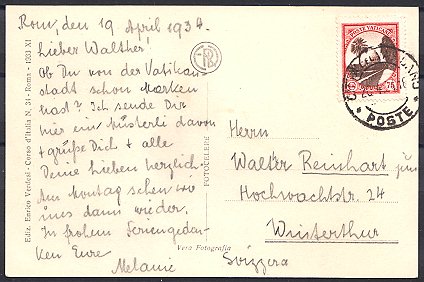 Rom, den 19 April 1934.
Lieber Walther!
Ob Du von der Vatikan-
stadt schon Marken
hast? Ich sende Dir
hier ein Müsterli davon
+ grüße Dich + alle
Deine Lieben herzlich.
Am Montag sehen wir
uns dann wieder.
In frohem Feriengedan-
ken Eure
Melanie
Ediz. Enrico Verdesi - Corso d'Italia N. 34 - Roma - 1931 XI
FOTOCELERE
Vera Fotografia
POSTE VATICANE
75
POSTE
Herrn
Walter Reinhart jun
Hochwachtstr. 24
Winterthur
Svizzera